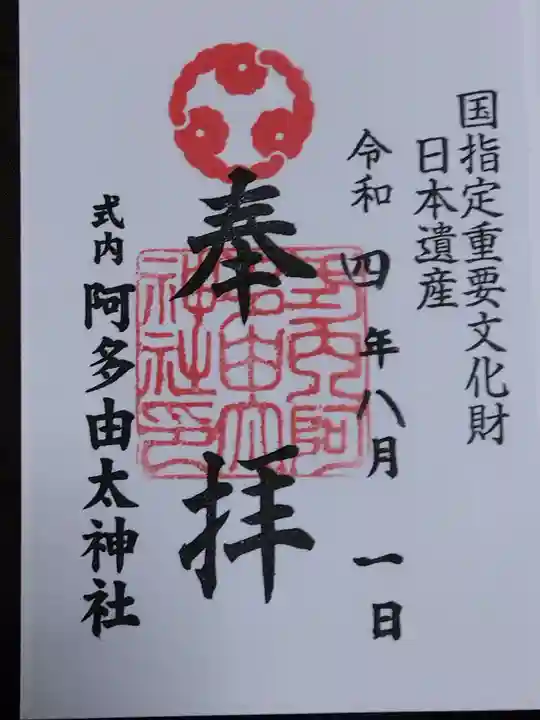 国指定重要文化財
日本遺産
令和四年八月一日
奉拝
式内阿多由太神社
式内阿
多由太
神社印